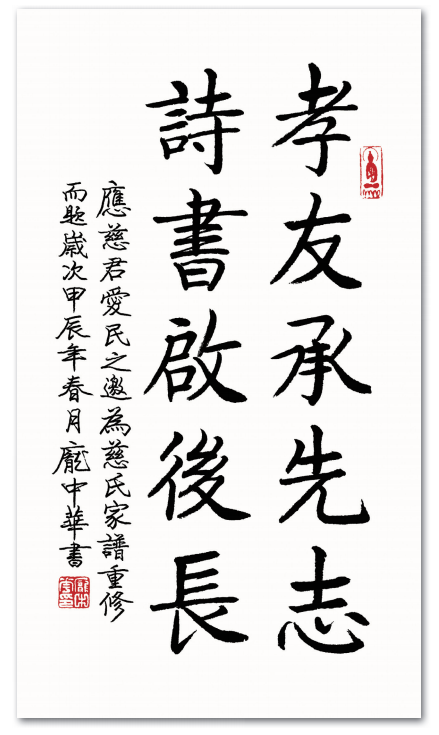 孝友承先志
詩書啟後長
應慈君愛民之邀為慈氏家譜重修
而題歲次甲辰年春月龐中華書